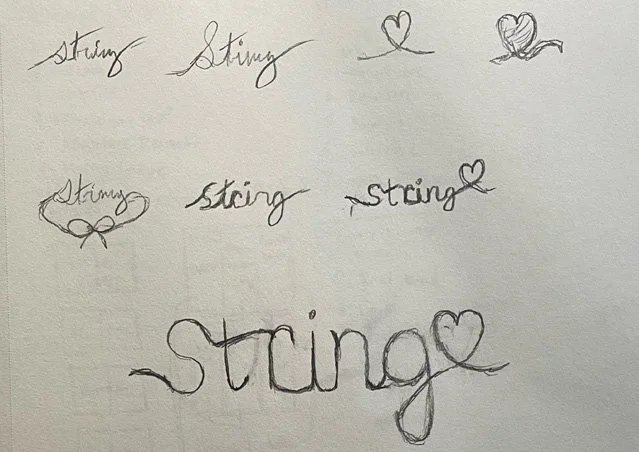 string String
String string string
string